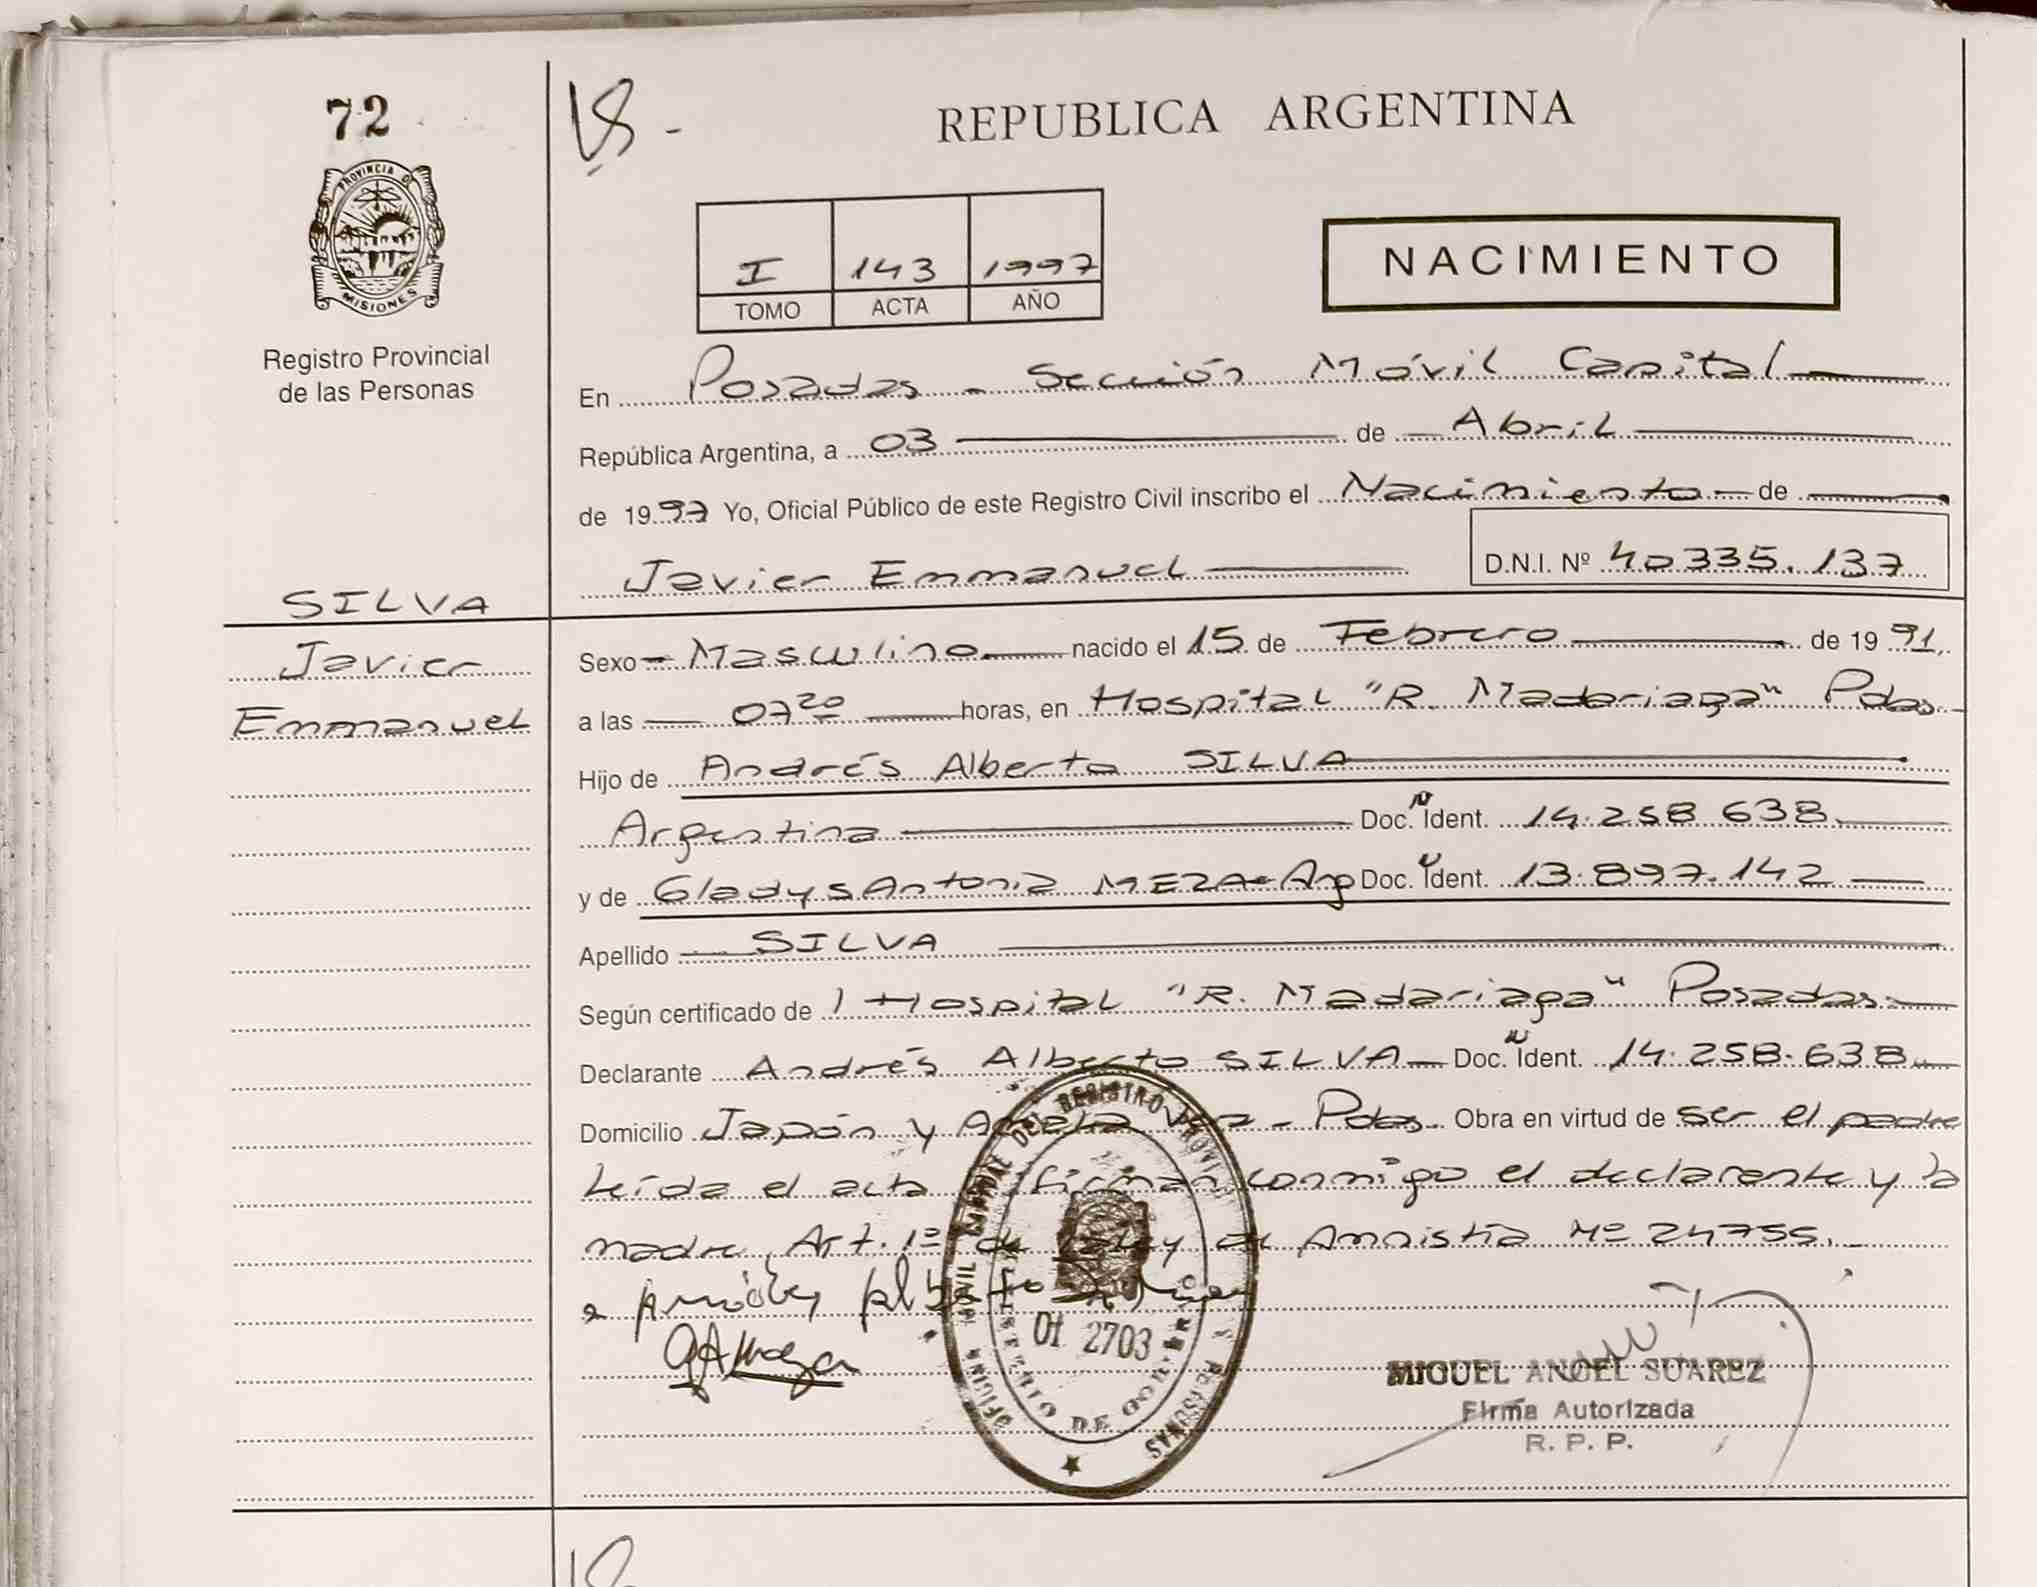 72
PROVINCIA D
MISIONES
Registro Provincial
de las Personas
REPUBLICA ARGENTINA
NACIMIENTO
I 143 1997
TOMO ACTA AÑO
En Posadas - Sección Móvil Capital
República Argentina, a 03 de Abril
de 1997 Yo, Oficial Público de este Registro Civil inscribo el Nacimiento de
Javier Emmanuel D.N.I. Nº 40335.137
SILVA
Javier
Emmanuel
Sexo Masculino nacido el 15 de Febrero de 1991.
a las 07 20 horas, en Hospital "R. Madariaga" Pdas.
Hijo de Andrés Alberto SILVA
Argentina Doc. Ident. 14.258 638
y de Gladys Antonia MEZA - Arg Doc. Ident. 13.897.142
Apellido SILVA
Según certificado de Hospital "R. Madariaga" Posadas
Declarante Andrés Alberto SILVA Doc. Ident. 14.258.638
Domicilio Japón y - Pdas. Obra en virtud de ser el padre
Leída el acta firman conmigo el declarante y la
madre. Art. 1º de Ley de Amnistía Nº 24755.
MIGUEL ANGEL SUAREZ
Firma Autorizada
R. P. P.
OFICINA MOVIL DEL REGISTRO PERSONAS
MINISTERIO DE GOBIERNO
01 2703